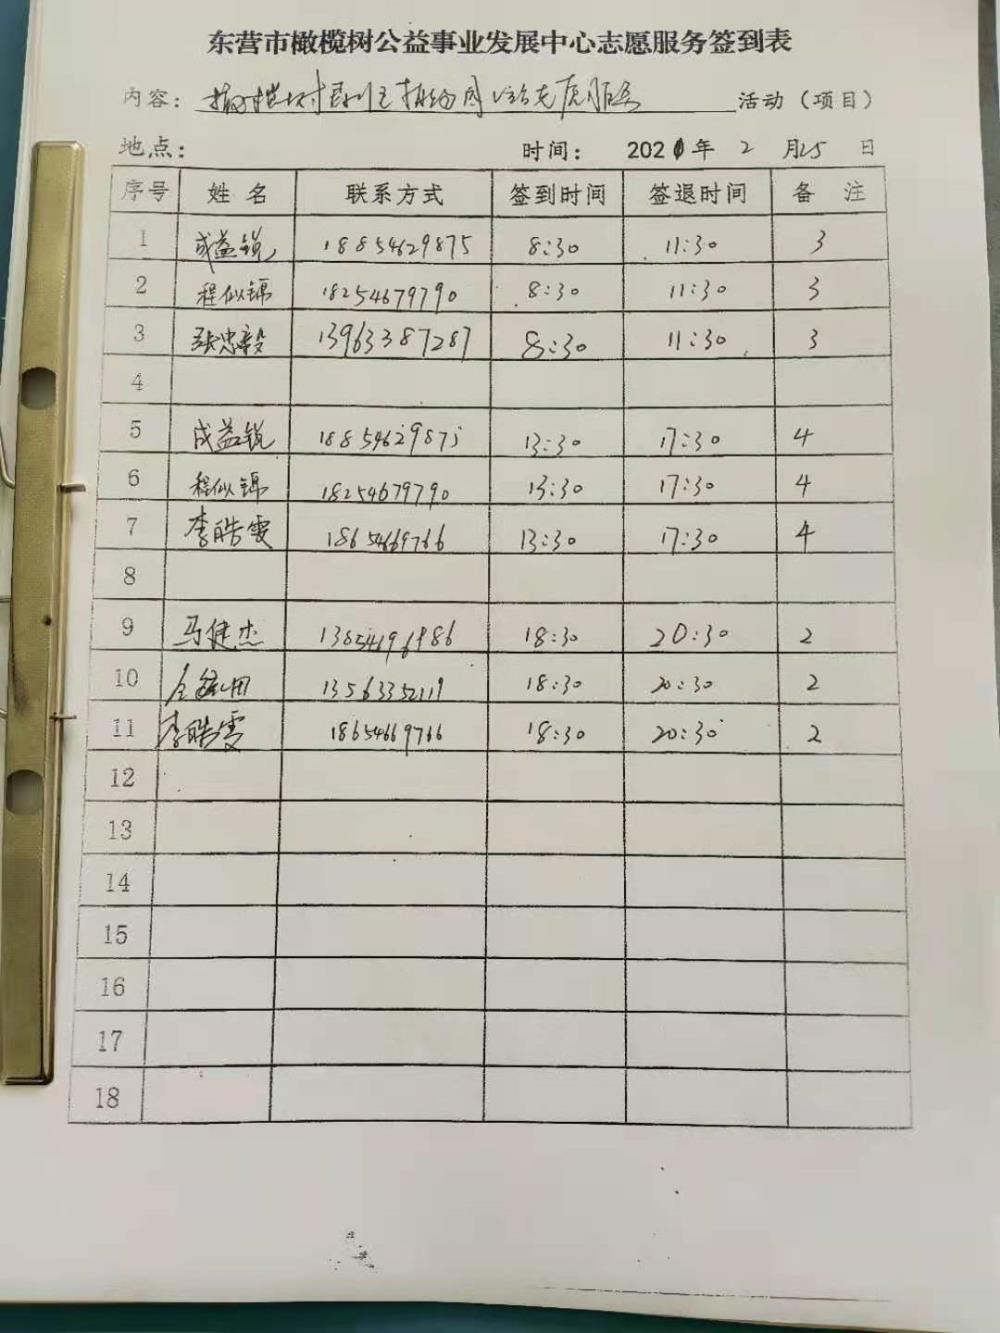 东营市橄榄树公益事业发展中心志愿服务签到表
内容：橄榄树 志愿服务 活动（项目）
地点： 时间： 2021年 2 月25 日
序号 姓 名 联系方式 签到时间 签退时间 备 注
1 成益锐 18854629875 8:30 11:30 3
2 程似锦 18254679790 8:30 11:30 3
3 张忠毅 13963387287 8:30 11:30 3
4
5 成益锐 18854629875 13:30 17:30 4
6 程似锦 18254679790 13:30 17:30 4
7 李皓雯 18654669766 13:30 17:30 4
8
9 马健杰 18:30 20:30 2
10 13563352119 18:30 20:30 2
11 李皓雯 18654669766 18:30 20:30 2
12
13
14
15
16
17
18